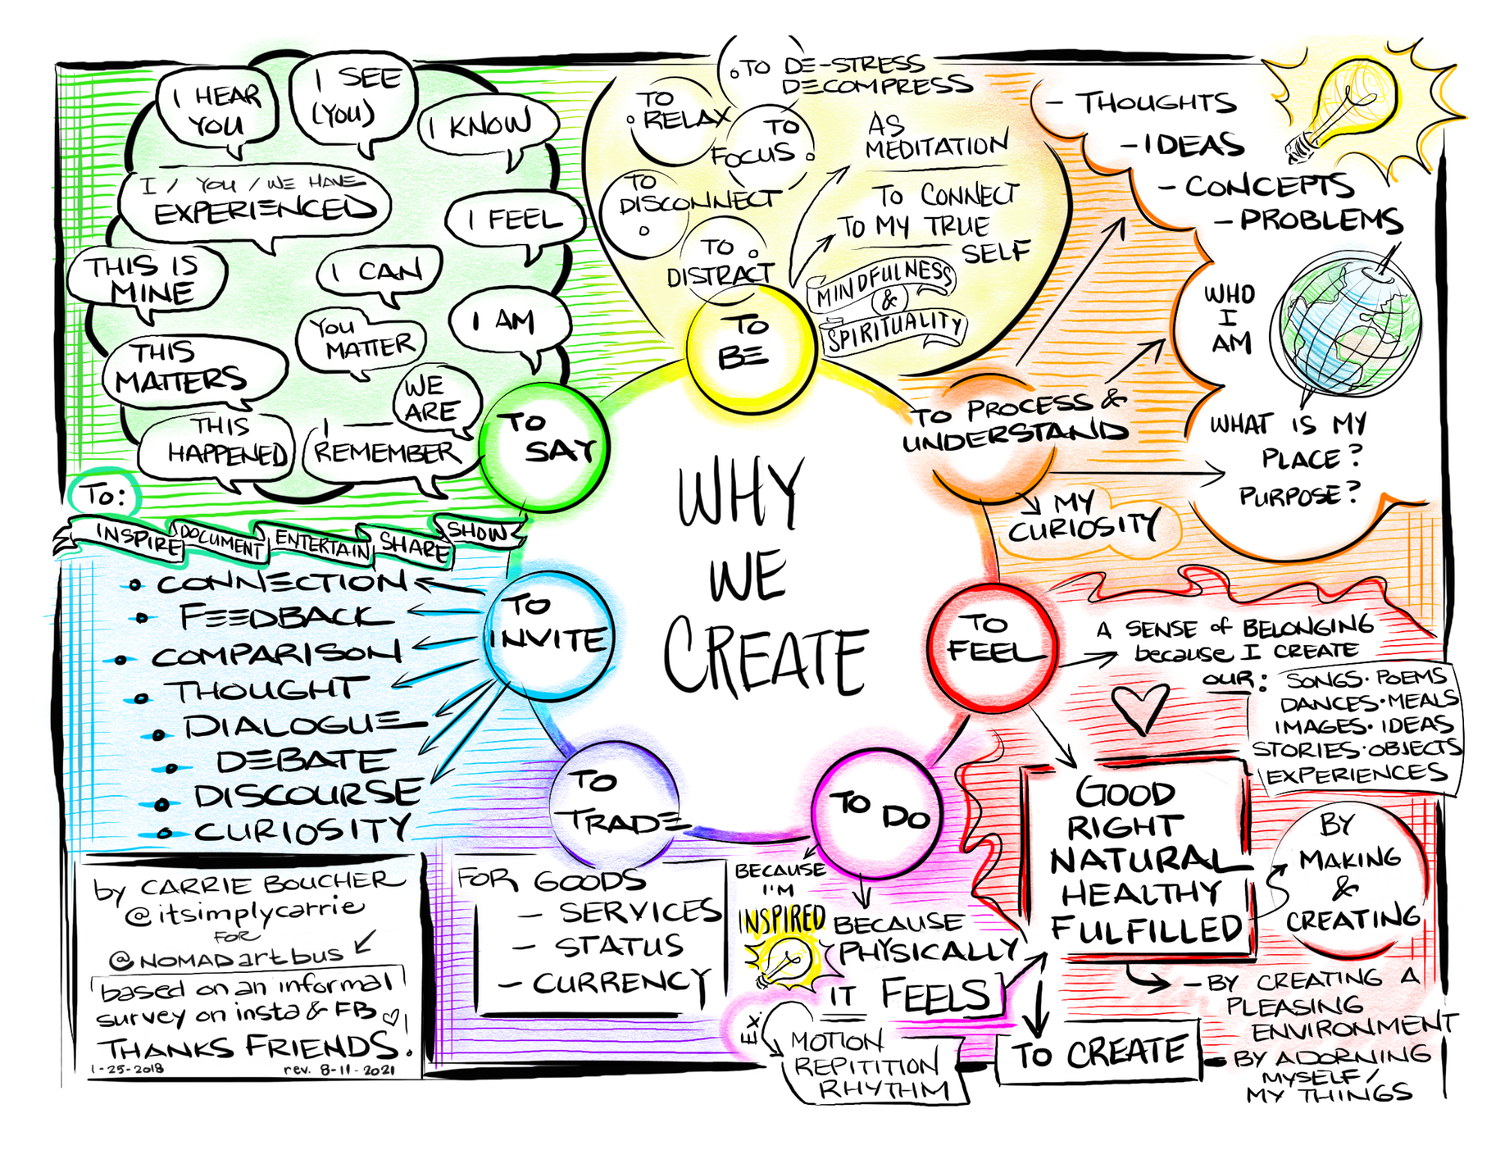 WHY
WE
CREATE
TO
SAY
I HEAR
YOU
I SEE
(YOU)
I KNOW
I / YOU / WE HAVE
EXPERIENCED
I FEEL
THIS IS
MINE
I CAN
YOU
MATTER
I AM
THIS
MATTERS
WE
ARE
THIS
HAPPENED
I
REMEMBER
TO:
INSPIRE
DOCUMENT
ENTERTAIN
SHARE
SHOW
TO
BE
TO DE-STRESS
DECOMPRESS
TO
RELAX
TO
FOCUS
TO
DISCONNECT
TO
DISTRACT
AS
MEDITATION
TO CONNECT
TO MY TRUE
SELF
MINDFULNESS
&
SPIRITUALITY
TO PROCESS &
UNDERSTAND
- THOUGHTS
- IDEAS
- CONCEPTS
- PROBLEMS
WHO
I
AM
WHAT IS MY
PLACE?
PURPOSE?
MY
CURIOSITY
TO
FEEL
A SENSE of BELONGING
because I CREATE
OUR:
SONGS · POEMS
DANCES · MEALS
IMAGES · IDEAS
STORIES · OBJECTS
EXPERIENCES
GOOD
RIGHT
NATURAL
HEALTHY
FULFILLED
BY
MAKING
&
CREATING
- BY CREATING A
PLEASING
ENVIRONMENT
- BY ADORNING
MYSELF/
MY THINGS
TO CREATE
TO DO
BECAUSE
I'M
INSPIRED
BECAUSE
PHYSICALLY
IT FEELS
Ex.
MOTION
REPITITION
RHYTHM
TO
TRADE
FOR GOODS
- SERVICES
- STATUS
- CURRENCY
TO
INVITE
• CONNECTION
• FEEDBACK
• COMPARISON
• THOUGHT
• DIALOGUE
• DEBATE
• DISCOURSE
• CURIOSITY
by CARRIE BOUCHER
@itsimplycarrie
FOR
@NOMADartbus
based on an informal
survey on insta & FB
THANKS FRIENDS!
1-25-2018 rev. 8-11-2021